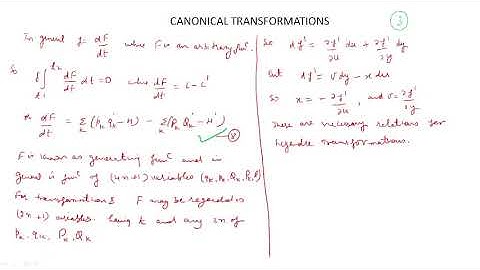 CANONICAL TRANSFORMATIONS
3
In general f = dF/dt where F is an arbitrary func.
So
δ∫_{t1}^{t2} dF/dt dt = 0 where dF/dt = L - L'
or dF/dt = Σ_k (p_k q̇_k - H) - Σ_k (P_k Q̇_k - H') ✓ ⑧
F is known as generating func and in
general is func of (4n+1) variables (q_k, p_k, Q_k, P_k, t)
For transformations F may be regarded as
(2n+1) variables. being t and any 2n of
p_k, q_k, P_k, Q_k
So df' = ∂f'/∂u du + ∂f'/∂y dy
But df' = v dy - x du
So x = -∂f'/∂u, and v = ∂f'/∂y
These are necessary relations for
Legendre Transformations.